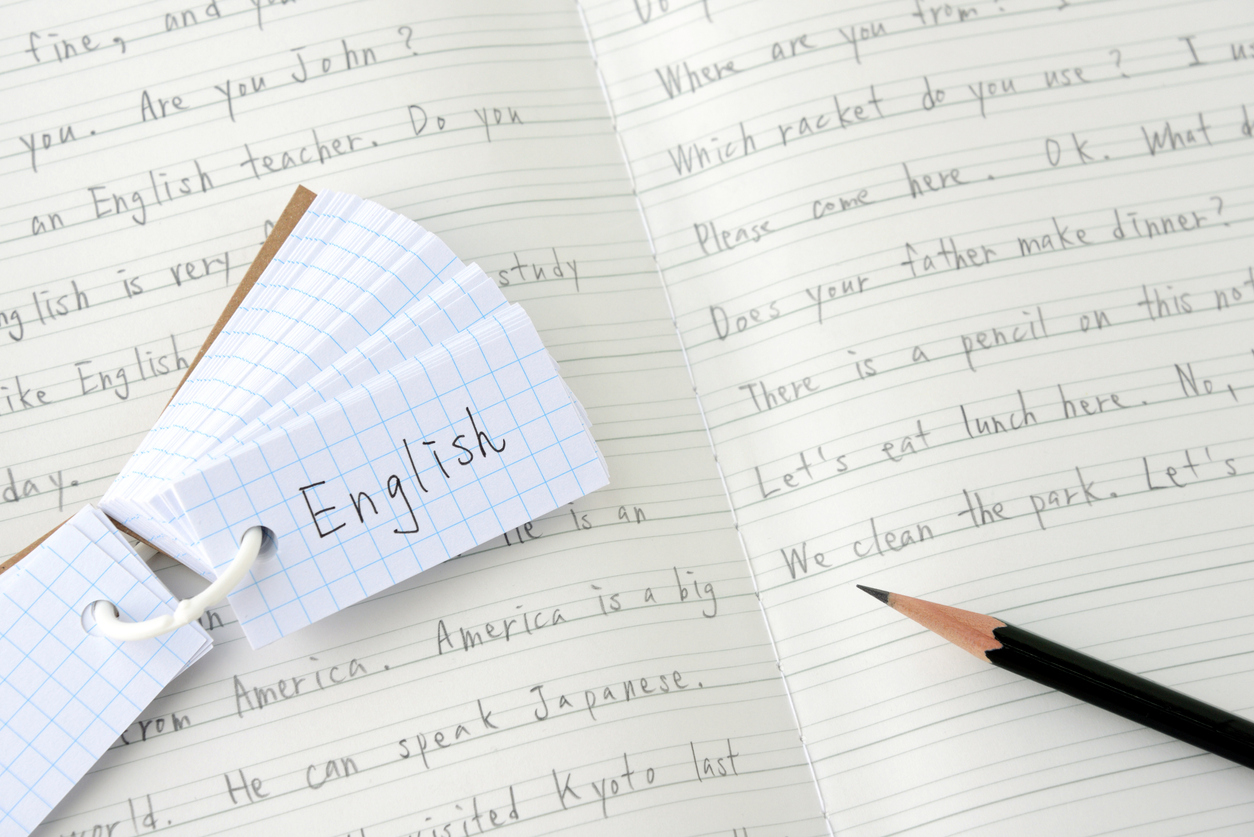 fine, and you
you. Are you John?
an English teacher. Do you
is very
study
English
day.
English
He is an
America. America is a big
He can speak Japanese.
world.
Kyoto last
Do
Where are you from?
Which racket do you use? I
Please come here. Ok. What
Does your father make dinner?
There is a pencil on this
Let's eat lunch here. No,
We clean the park. Let's